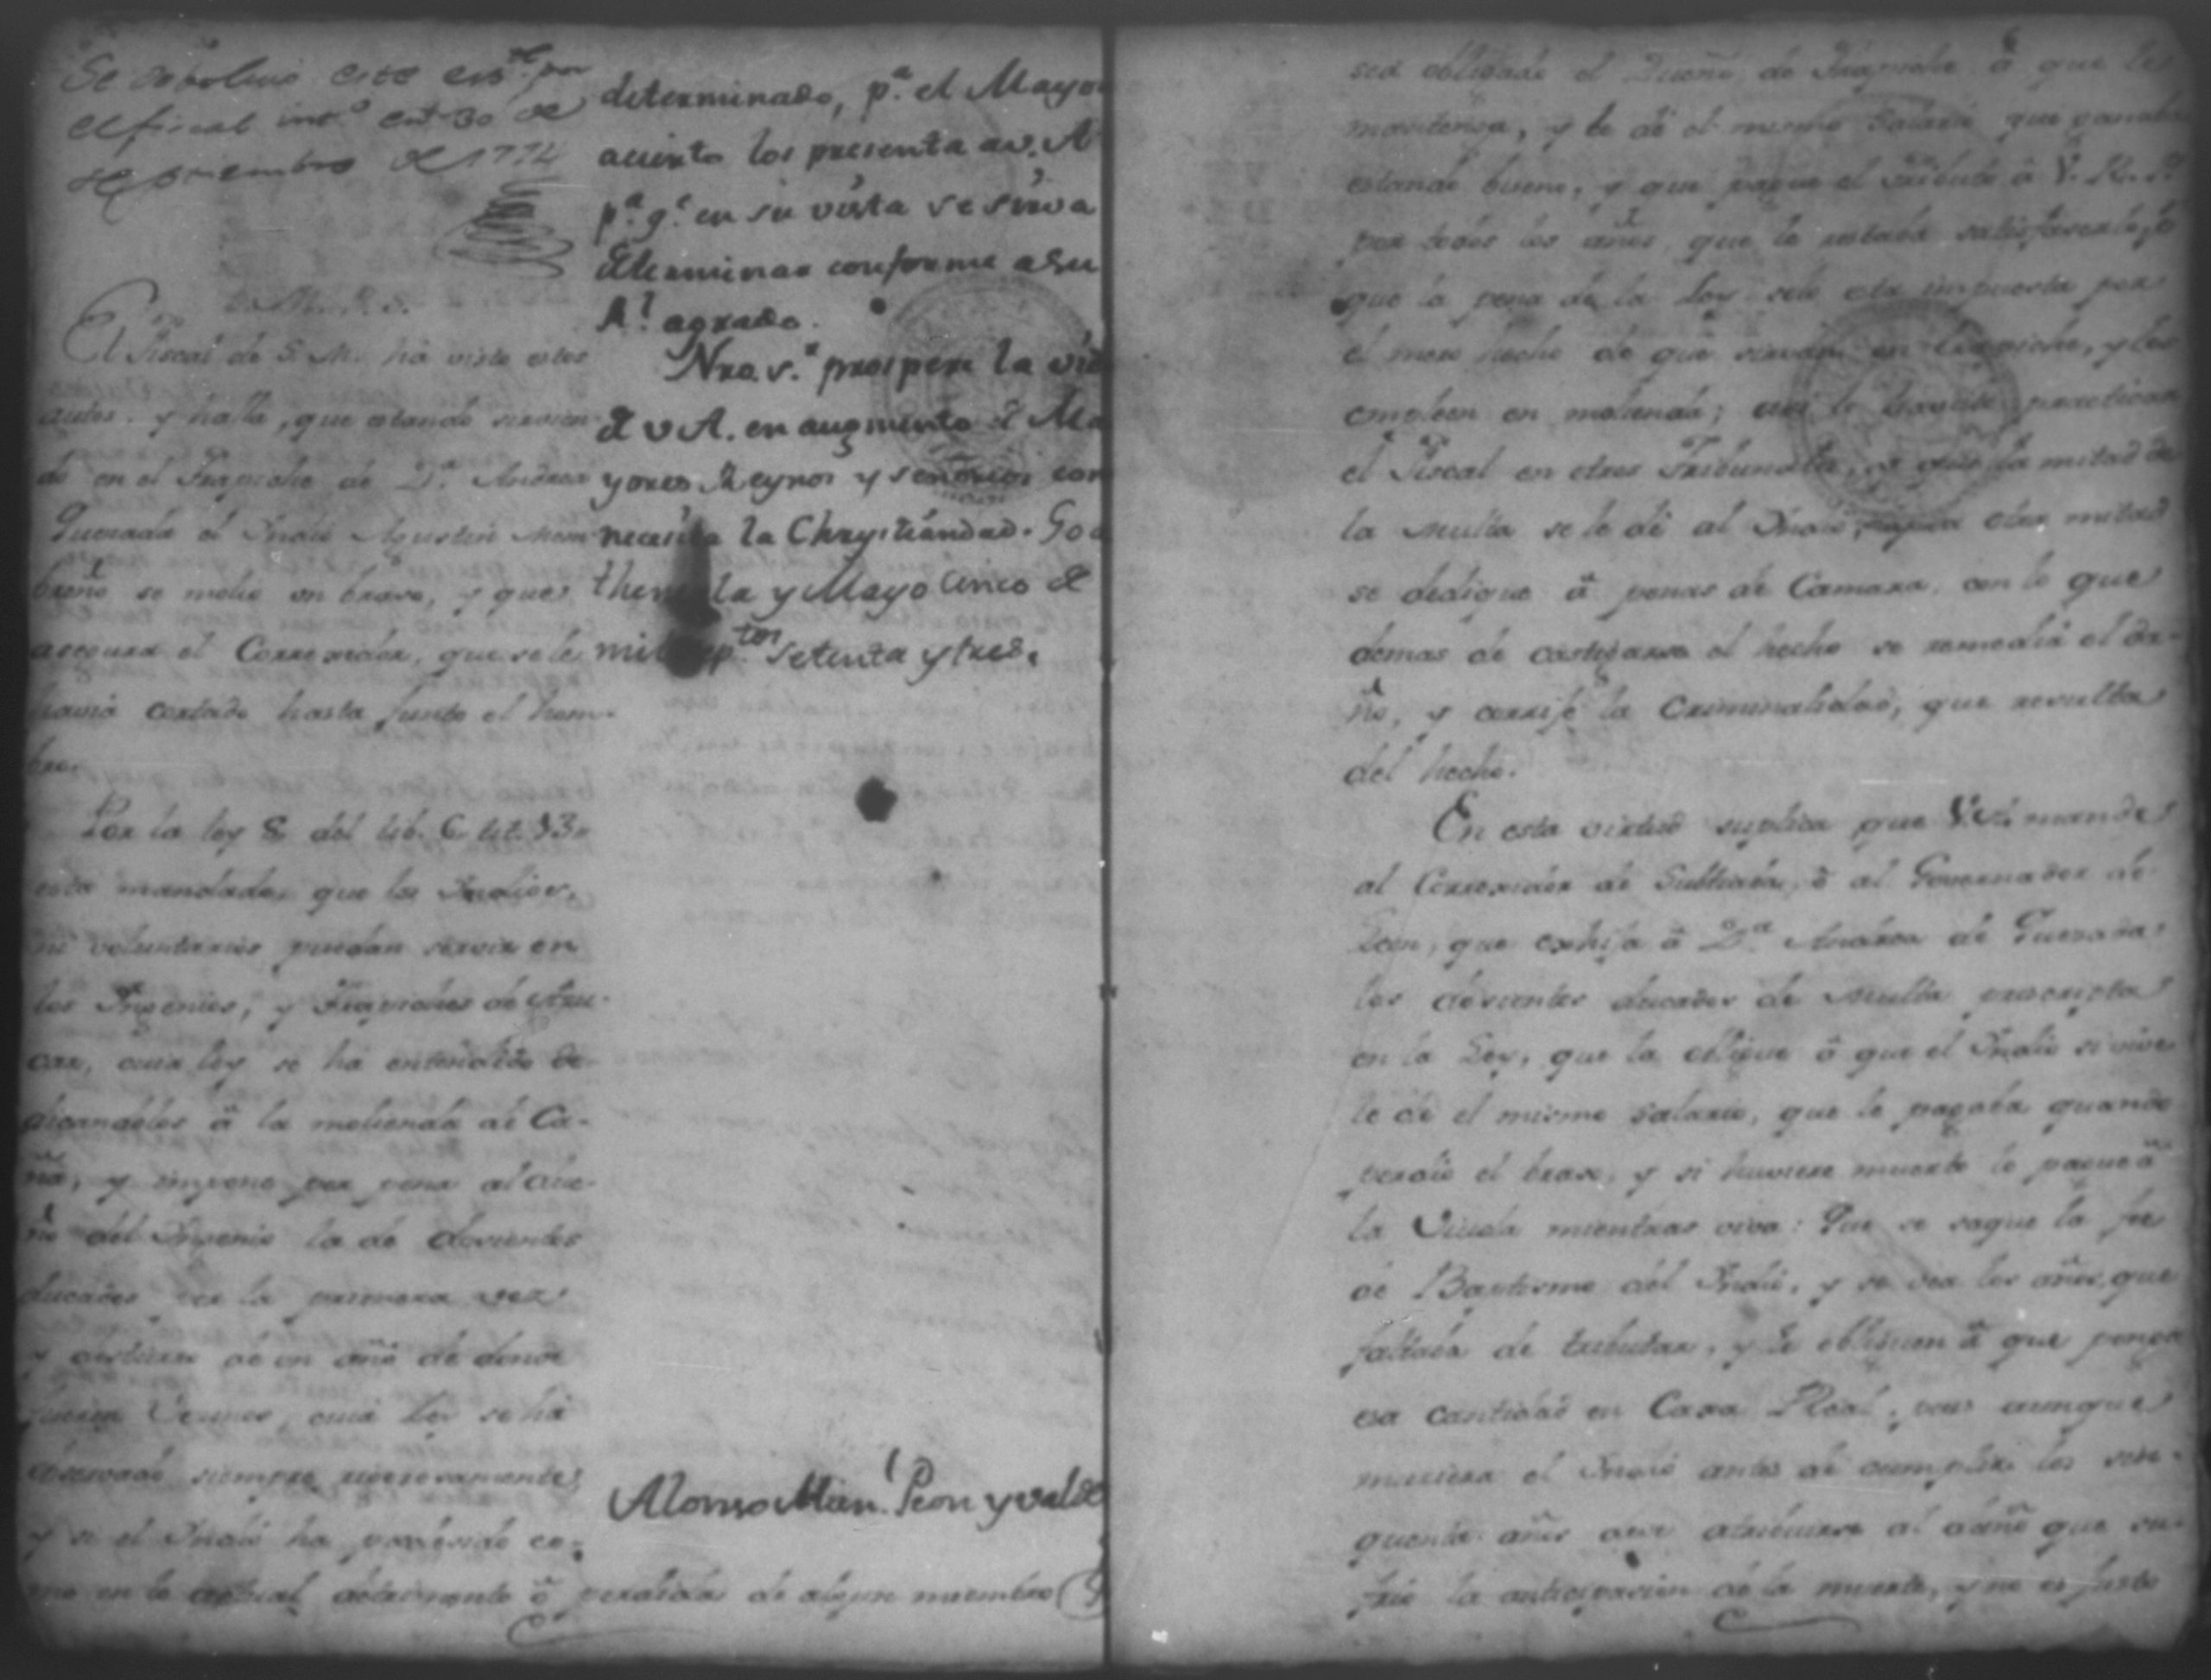 Se debolvio este exp.te por
el fiscal int.o en 30 de
septiembre de 1774
determinado, p.a el Mayor
acierto los presenta a v. A
p.a q.e en su vista se sirva
determinar conforme a su
R.l agrado.
Nro. s.r prospere la vida
de v A. en augmento de Ma
yores Reynos y señorios como
necesita la Chrystiandad. Goa
themala y Mayo cinco de
mil sep.tos setenta y tres.
Alonso Man.l Peon y valdes
M. P. S.
El Fiscal de S. M. há visto estos
autos y halla, que estando sirvien
do en el Trapiche de D.a Andrea
Quesada el Indio Agustin Mem
breño se molio un brazo, y que
asegura el Correxidor, que se le
havia cortado hasta junto el hom-
bro.
Por la ley 8 del lib. 6 tit. 13.
está mandado, que los Indios,
ni voluntarios puedan servir en
los Ingenios, y Trapiches de Azu-
car, cuia ley se ha entendido de
dicandolos á la molienda de Ca-
ña, y impone por pena al due-
ño del Ingenio la de docientos
ducados por la primera vez
y destierro de un año de donde
fueren Vecinos, cuia ley se há
observado siempre rigorosamente
y si el Indio ha padecido co-
mo en lo actual detrimento ó perdida de algun miembro
sea obligado el Dueño de Trapiche á que le
mantenga, y le dé el mismo salario que ganaba
estando bueno, y que pague el tributo á V. R. P.
por todos los años, que le restaba satisfacerlo,
que la pena de la Ley solo está impuesta por
el mero hecho de que sirvan en Trapiche, y los
empleen en molienda;
el Fiscal en otros Tribunales, la mitad de
la multa se le dé al Indio, otra mitad
se dedique á penas de Camara, con lo que
demas de castigarse el hecho se remedia el da-
ño, y corrije la Criminalidad, que resulta
del hecho.
En esta virtud suplica que V.A. mande
al Correxidor de Subtiaba, ó al Governador de
Leon, que exhija á D.a Andrea de Quesada
los docientos ducados de Multa prescripta
en la Ley, que la obligue á que el Indio si vive
le dé el mismo salario, que le pagaba quando
perdio el brazo, y si huviere muerto lo pague á
la Viuda mientras viva: Que se saque la fee
de Bautismo del Indio, y se vea los años, que
faltaba de tributar, y le obliguen á que ponga
esa cantidad en Caxa Real, pues aunque
muriera el Indio antes de cumplir los cin-
quenta años deve atribuirse al daño que su-
frió la anticipacion de la muerte, y no es justo